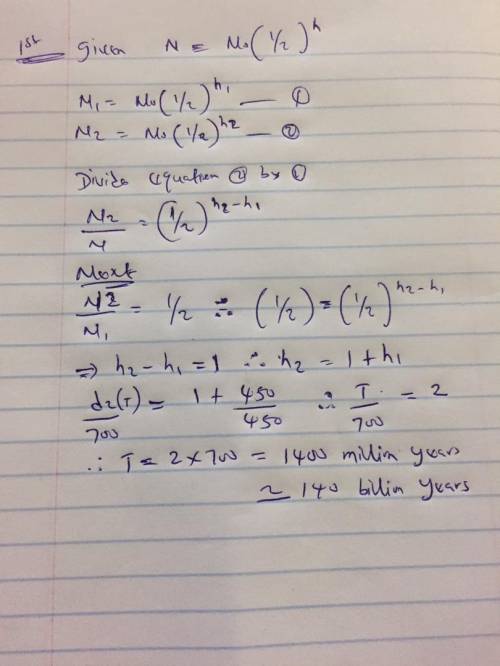 1st Given N = No(1/2)^h
N1 = No(1/2)^h1 — ①
N2 = No(1/2)^h2 — ②
Divide equation ② by ①
N2/N = (1/2)^h2-h1
Next
N2/N1 = 1/2 ∴ (1/2) = (1/2)^h2-h1
⇒ h2-h1 = 1 ∴ h2 = 1 + h1
d2(T)/700 = 1 + 450/450 ∴ T/700 = 2
∴ T = 2 × 700 = 1400 millim years
~ 140 billim years